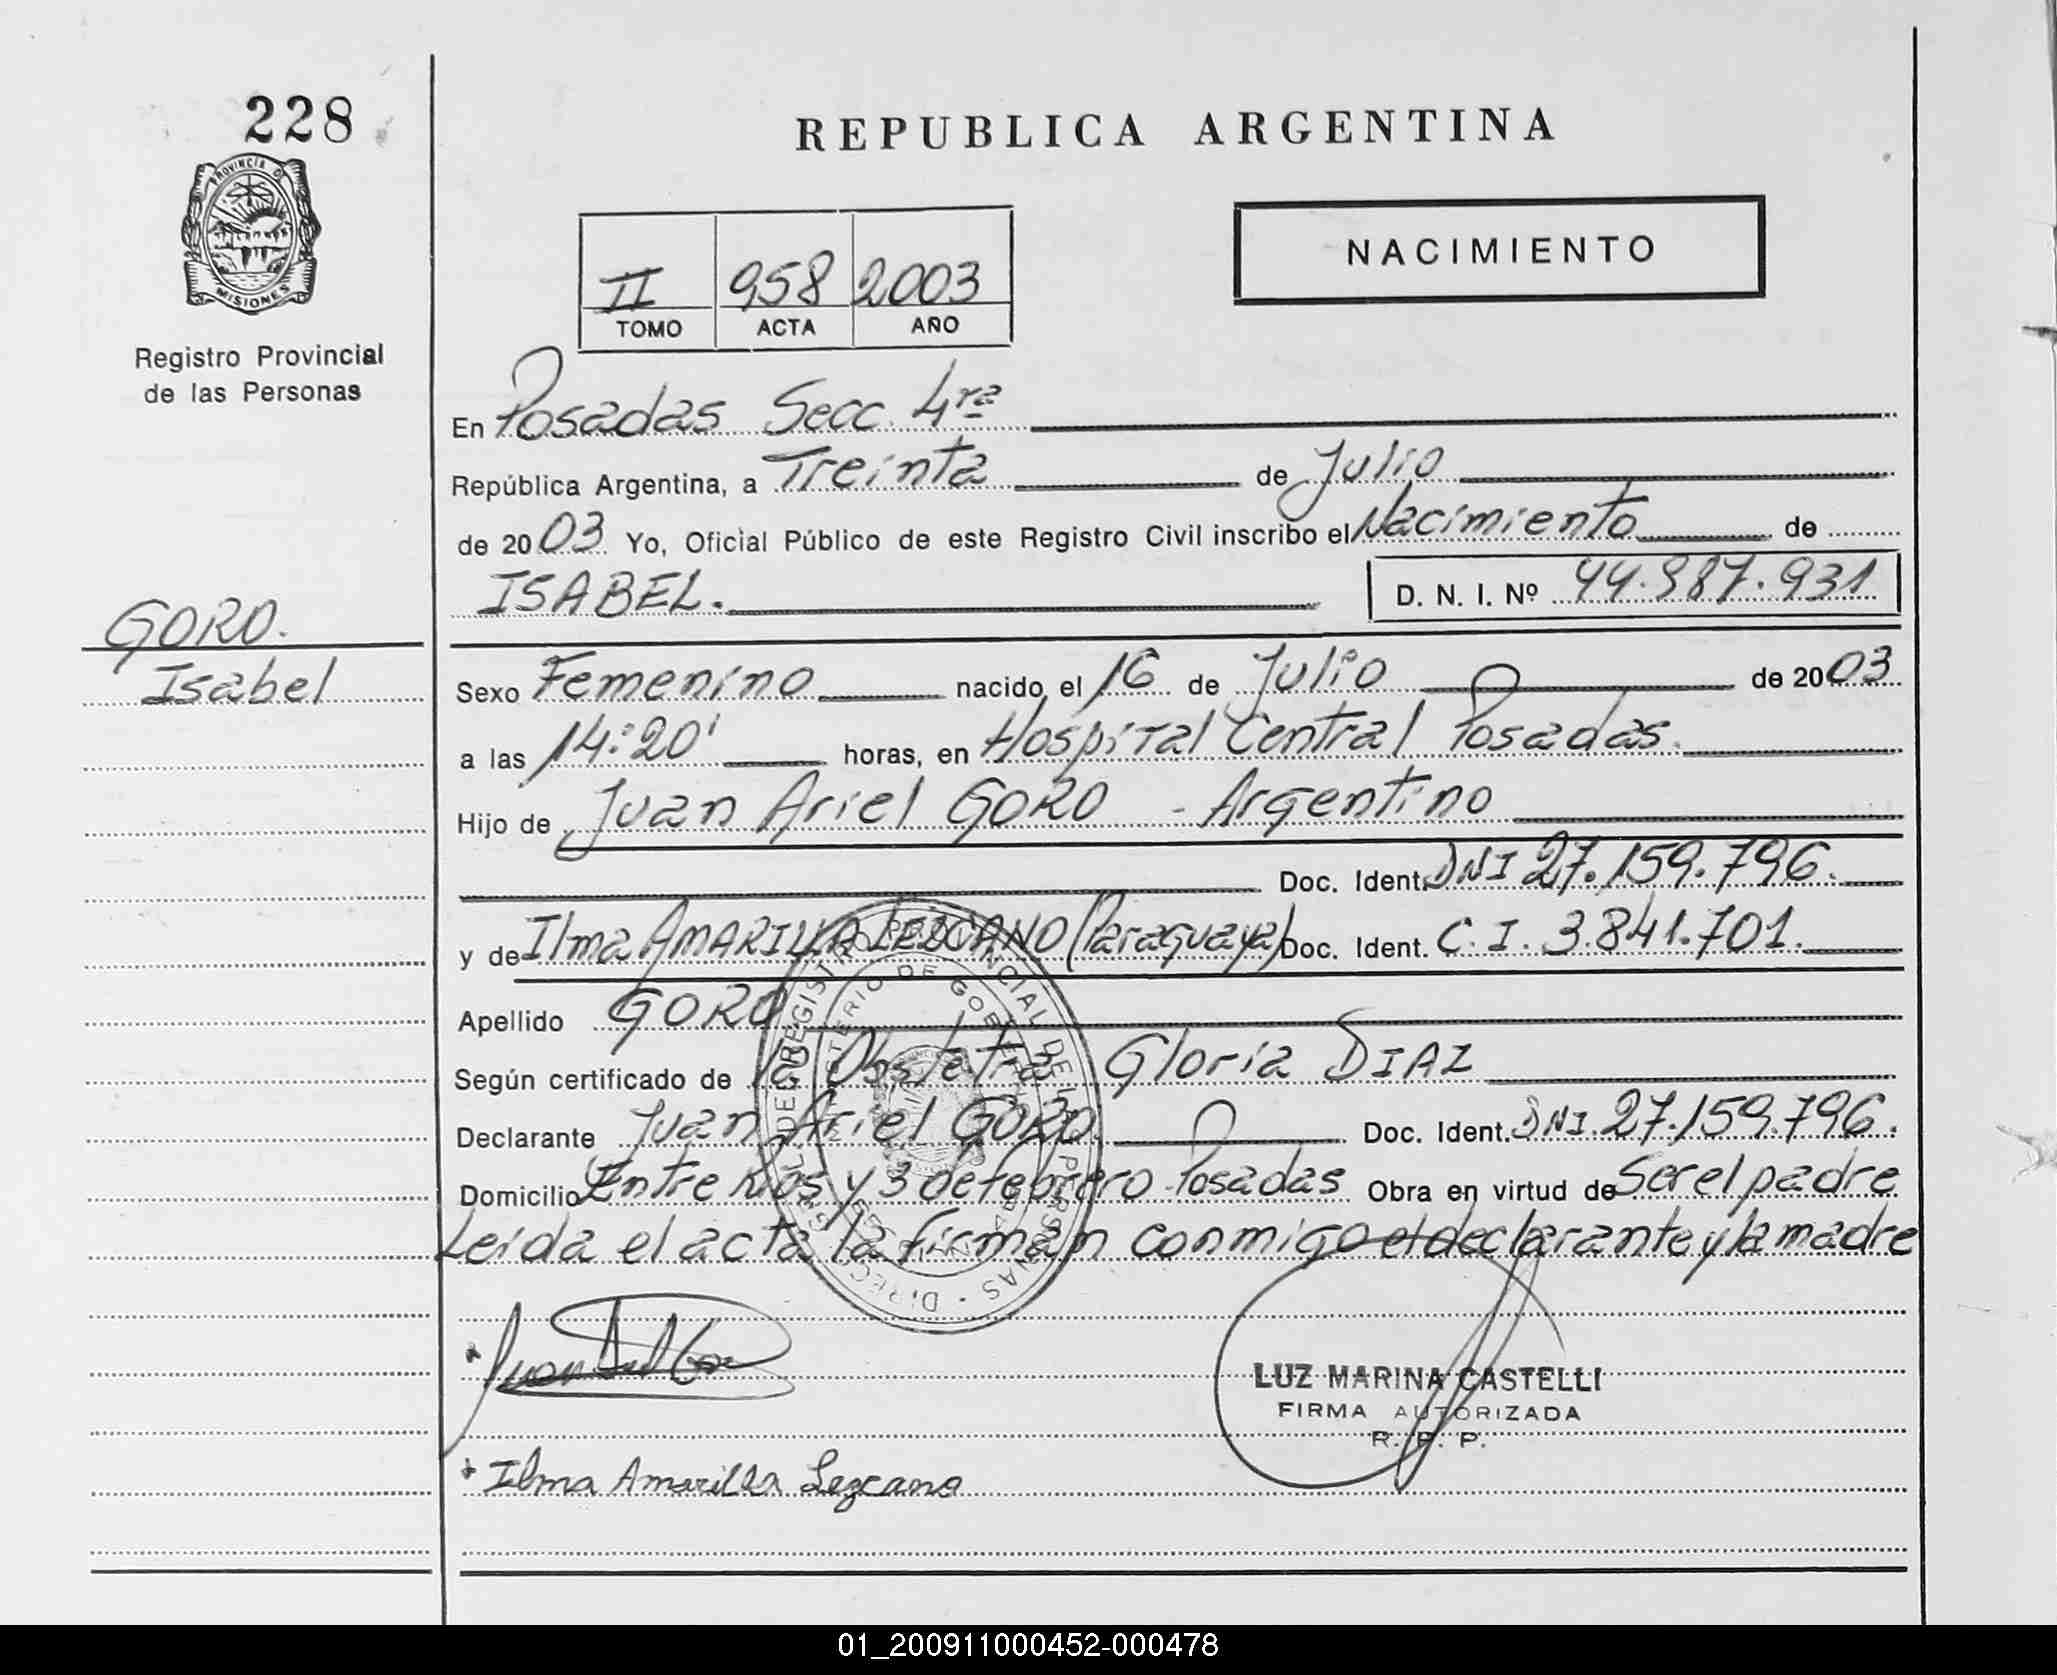 228
PROVINCIA DE
MISIONES
Registro Provincial
de las Personas
GORO.
Isabel
REPUBLICA ARGENTINA
NACIMIENTO
II 958 2003
TOMO ACTA AÑO
En Posadas Secc. 4ra
República Argentina, a Treinta de Julio
de 2003 Yo, Oficial Público de este Registro Civil inscribo el Nacimiento de
ISABEL. D. N. I. Nº 44.987.931
Sexo Femenino nacido el 16 de Julio de 2003
a las 14:20' horas, en Hospital Central Posadas.
Hijo de Juan Ariel GORO - Argentino
Doc. Ident. DNI 27.159.796.
y de Ilma AMARILLA LEZCANO (Paraguaya) Doc. Ident. C. I. 3.841.701.
Apellido GORO
Según certificado de la Obstetra Gloria DIAZ
Declarante Juan Ariel GORO. Doc. Ident. DNI. 27.159.796.
Domicilio Entre Ríos y 3 de febrero Posadas Obra en virtud de Ser el padre
Leída el acta la firman conmigo el declarante y la madre
Ilma Amarilla Lezcano
LUZ MARINA CASTELLI
FIRMA AUTORIZADA
R. P. P.
01_200911000452-000478